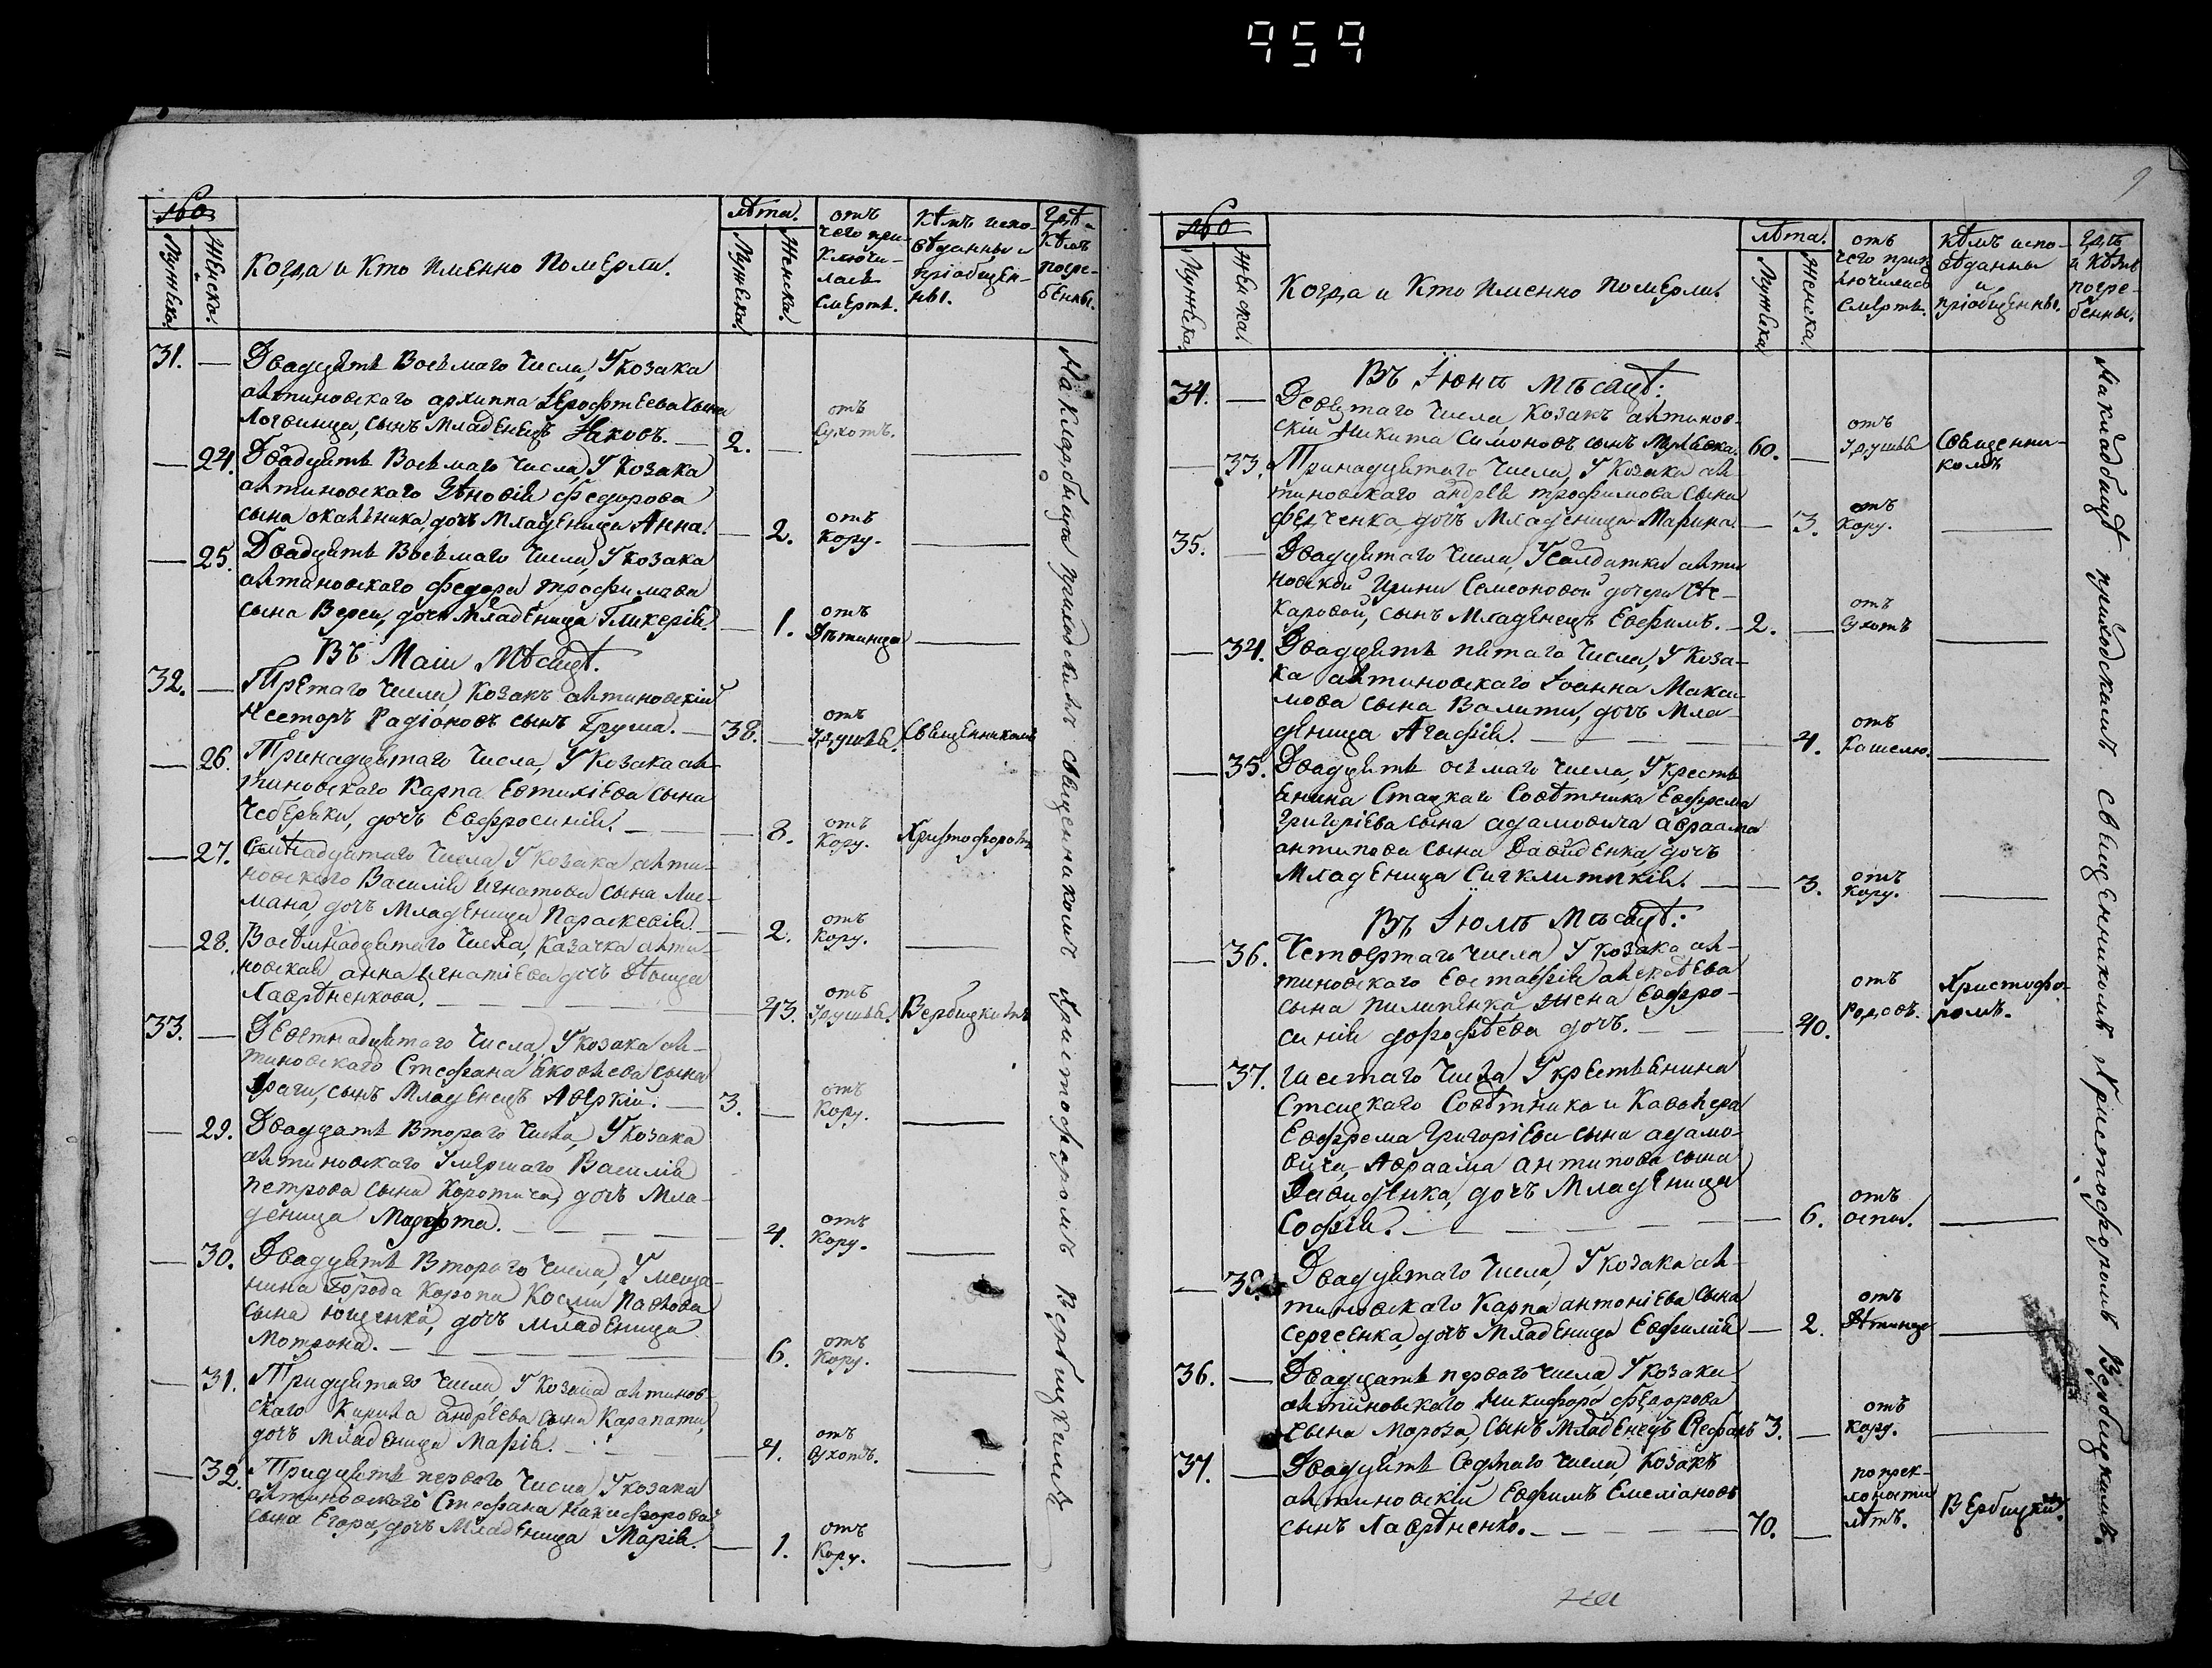 959
№о
Мужеска.
Женска.
Когда и кто именно померли.
лѣта.
Мужеска.
Женска.
отъ
чего при-
ключи-
лась
смерть.
кѣмъ испо-
вѣданны и
пріобщен-
ны.
Гдѣ и
кѣмъ
погре-
бенны.
31. — Двадцять восьмаго числа, У козака
алтиновскаго архиппа Ерофтеева сына
Логвинца, сынъ младенецъ Іаковъ. — 2. — отъ сухотъ. —
— 24. Двадцять восьмаго числа, У козака
алтиновскаго Зѣновія федорова
сына дочъ младеница Анна. — 2. отъ кору. —
— 25. Двадцять восьмаго числа, У козака
алтиновскаго федора трофимова
сына Вереи, дочъ младеница Гликерія. — 1. отъ дѣтинца —
Въ Маіи мѣсяцѣ.
32. — Третаго числа, козакъ алтиновскій
Несторъ Радіоновъ сынъ Груша. — 38. — отъ грушья. священникомъ
— 26. Тринадцятаго числа, У козака ал-
тиновскаго Карпа Евтихіева сына
Чеберяки, дочъ Евфросинія. — — 8. отъ кору. Христофоромъ
— 27. Семнадцятаго числа, У козака алти-
новскаго Василія Игнатова сына Лис-
мана, дочъ младеница Параскевія. — 2. отъ кору. —
— 28. Восемнадцятаго числа, казачка алти-
новская анна Игнатіева дочъ дѣвица
Лаврѣненкова. — 43. отъ грушья. Вербицкимъ
33. — Деветнадцятаго числа, У козака ал-
тиновскаго Стефана Яковлева сына
Драги, сынъ младенецъ Аверкій. — 3. — отъ кору. —
— 29. Двадцать втораго числа, У козака
алтиновскаго умершаго Василія
петрова сына Коротича, дочъ мла-
деница Марфта. — 4. отъ кору. —
— 30. Двадцять втораго числа, У меща-
нина города Коропа Косми Павлова
сына Ющенка, дочъ младеница
Мотрона. — 6. отъ кору. —
— 31. Тридцятаго числа, У козака алтинов-
скаго Кирила андреева сына Карапати,
дочъ младеница Марія. — 4. отъ сухотъ. —
— 32. Тридцять перваго числа У козака
алтиновского Стефана Никифорова
сына Егора, дочъ младеница Марія. — 1. отъ кору. —
На кладбищѣ приходскимъ священникомъ Христофоромъ Вербицкимъ
9
№о
Мужеска.
Женска.
Когда и кто именно померли.
лѣта.
Мужеска
Женска.
отъ
чего прик-
лючилась
смерть.
кѣмъ испо-
вѣданны
и
пріобщенны.
Гдѣ
и кѣмъ
погре-
бенны.
Въ Іюнѣ мѣсяцѣ:
34. — Девятаго числа, козакъ алтинов-
скій Никита Симоновъ сынъ 60. — отъ грушья Священни-
комъ
— 33. Тринадцятаго числа, У козака ал-
тиновскаго андрея трофимова сына
федченка, дочъ младеница Марина — 3. отъ кору. —
35. — Двадцятаго числа, У салдатки алти
новской Ирини Семеоновой дочери
сынъ младенецъ Евфимъ. — 2. — отъ сухотъ —
— 34. Двадцять пятаго числа, У коза-
ка алтиновскаго Іоанна Макси
мова сына Валити, дочъ мла-
деница Агафія. — 4. отъ кашелю. —
— 35. Двадцять осьмаго числа, У кресть
янина Статскаго Совѣтника Евфрема
Григоріева сына адамовича авраама
антипова сына Давиденка, дочъ
младеница Сигклитикія. — 3. отъ кору. —
Въ Іюлѣ мѣсяцѣ:
— 36. Четвертаго числа, У козака ал-
тиновскаго Евстафія алексѣева
сына пилипенка жена Евфро-
синія дорофѣева дочъ. — 40. отъ родовъ. Христофо-
ромъ.
— 37. шестаго числа У крестьянина
Статскаго Совѣтника и Кавалера
Евфрема Григоріева сына адамо-
вича, Авраама антипова сына
Давиденка, дочъ младеница
Софія. — 6. отъ оспи. —
— 38. Двадцятаго числа, У козака ал-
тиновскаго Карпа антоніева сына
сергеенка, дочъ младеница Евфимія — 2. отъ дѣтинца —
36. — Двадцать перваго числа, У козака
алтиновскаго Никифора федорова
сына Мороза, сынъ младенецъ Стефанъ 3. — отъ кору. —
37. — Двадцять Седмаго числа, козакъ
алтиновскій Евфимъ Емеліановъ
сынъ Лаврѣненко. — 70. — лѣтъ. Вербицкимъ
На кладбищѣ приходскимъ священникомъ Христофоромъ Вербицкимъ.